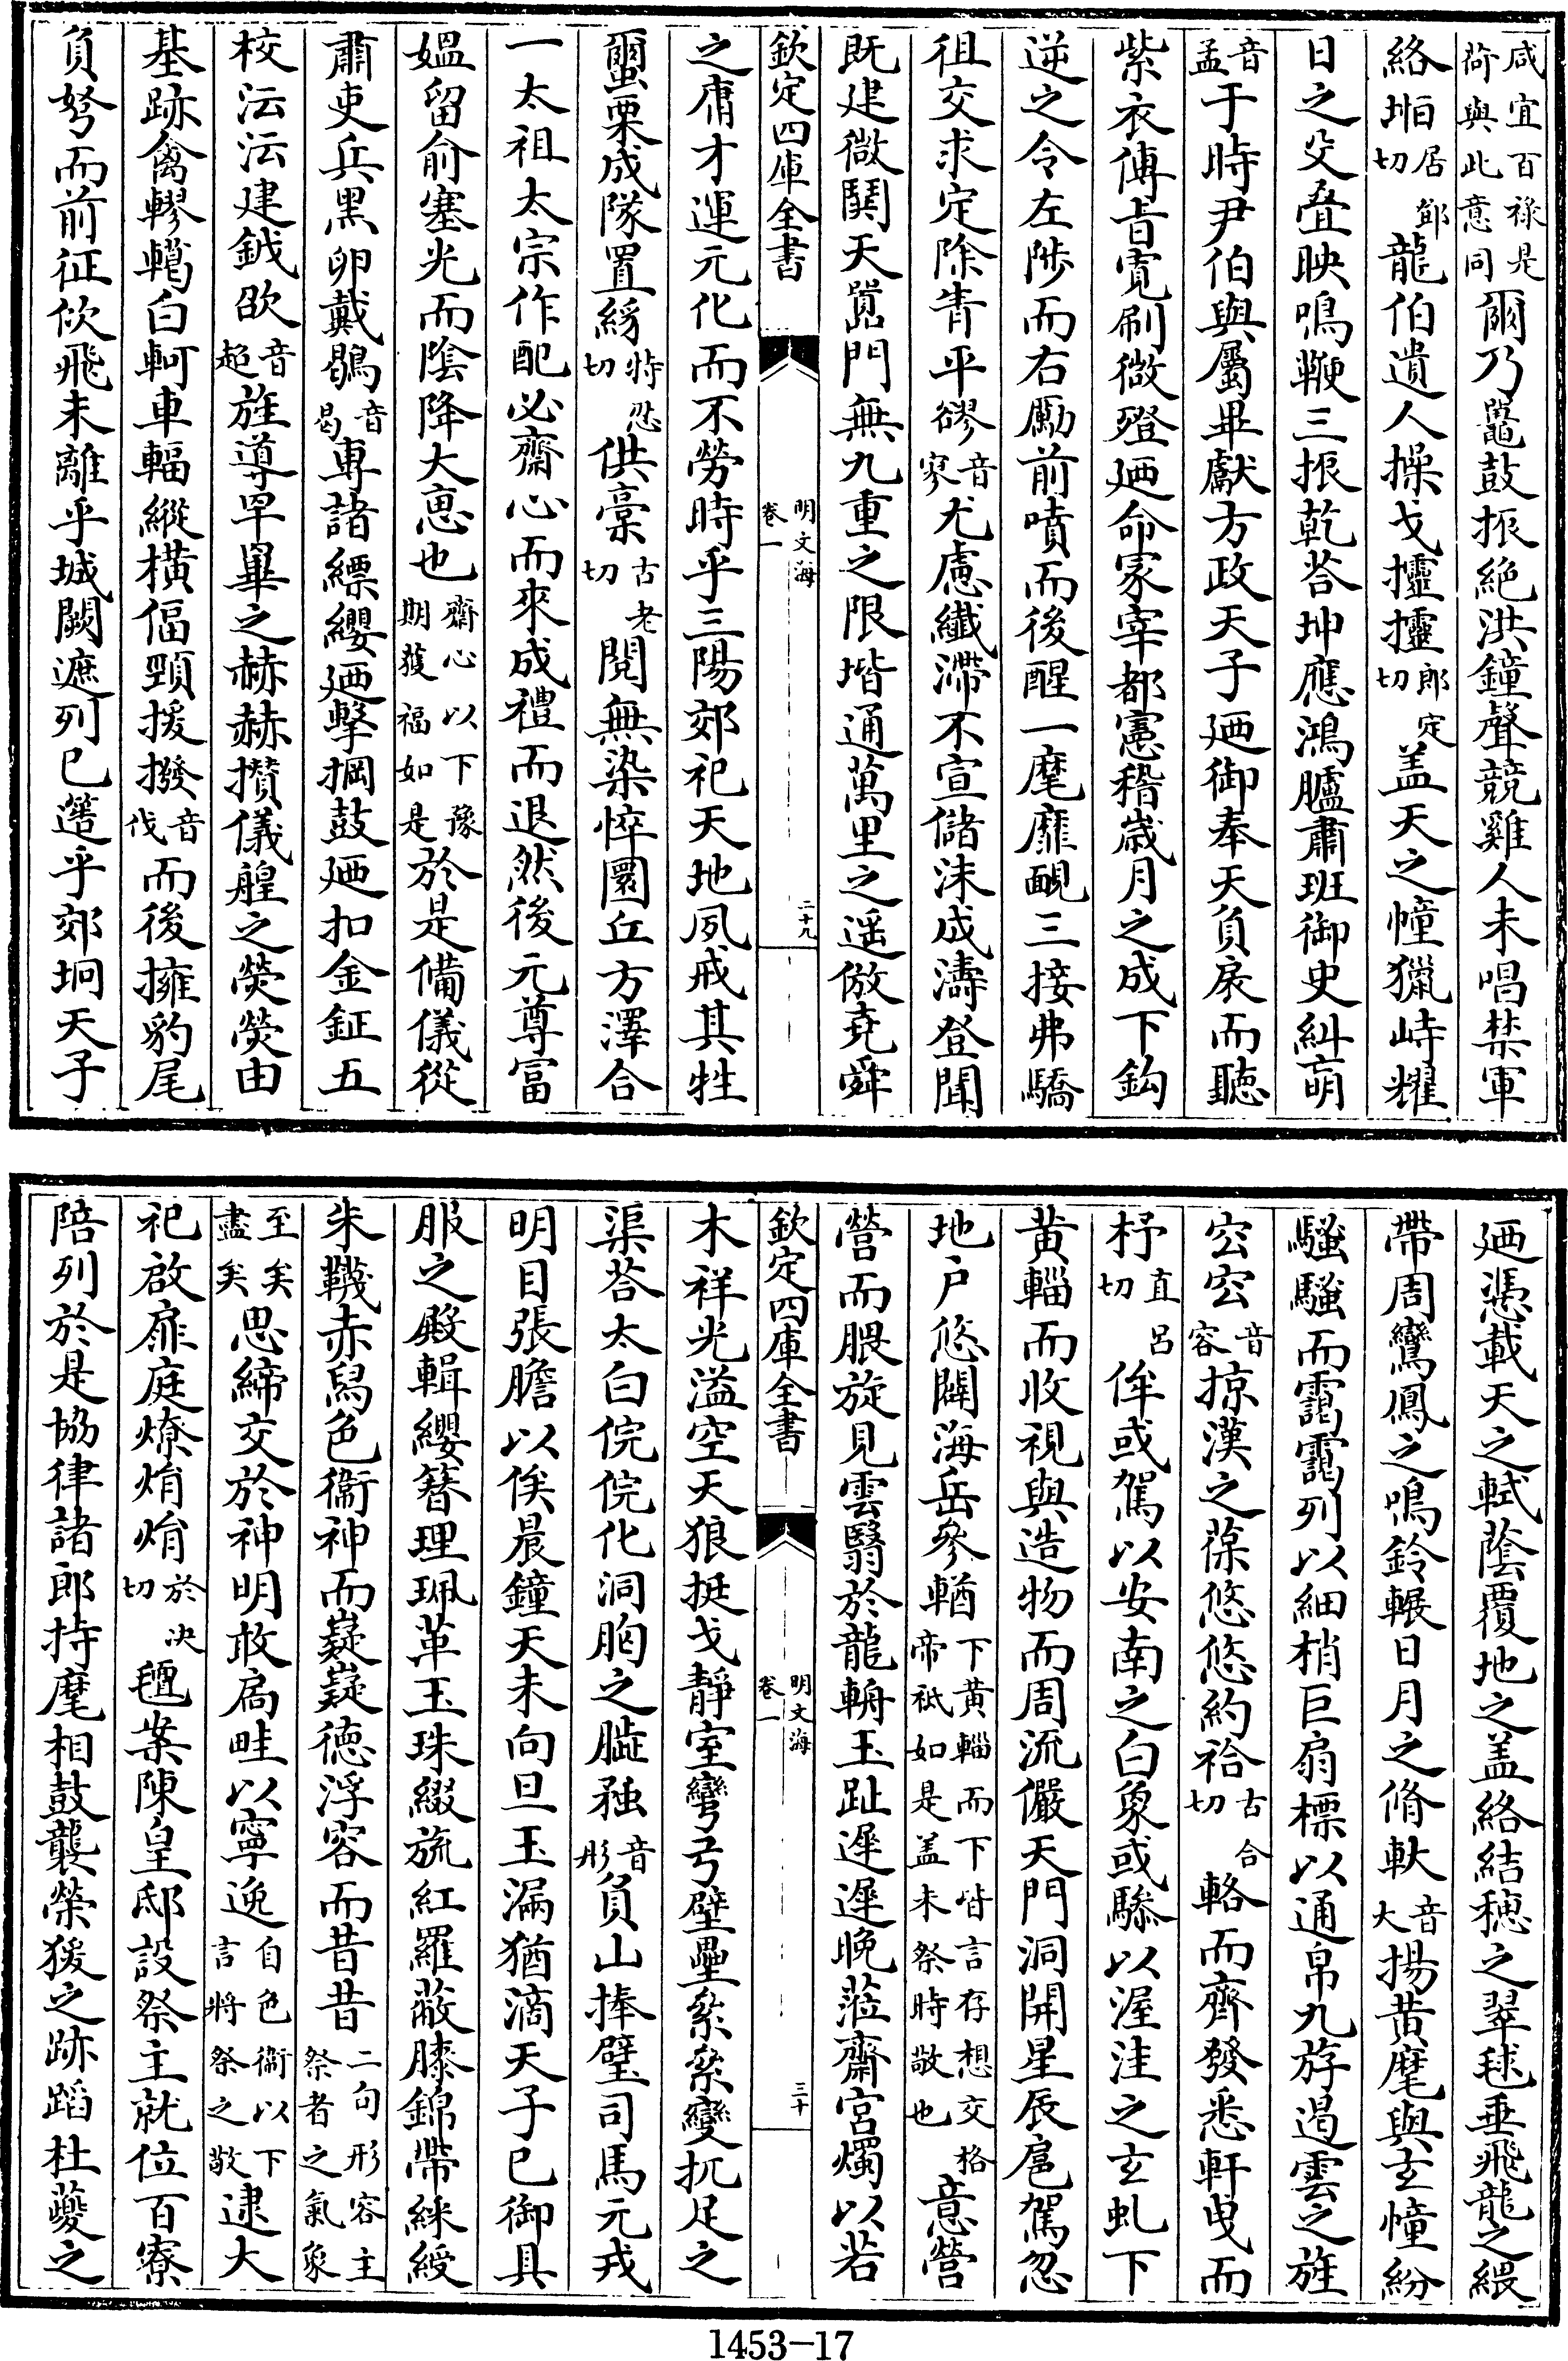 咸宜百祿是荷與此意同爾乃鼉鼓振絶洪鐘聲競雞人未唱禁軍
絡𡌴居鄧切龍伯遺人操戈𢺰𢺰郎定切盖天之幢獵峙耀
日之殳叠映鳴鞭三振乾荅坤應鴻臚肅班御史糾萌
音孟于時尹伯與屬畢獻方政天子廼御奉天負扆而聽
紫衣傳旨寛刷微蹬廼命冡宰都憲稽嵗月之成下鈎
逆之令左陟而右勵前嘖而後醒一麾靡覥三接弗驕
徂交求定除青平𧮰音寥尤慮纖滯不宣儲洡成濤登聞
既建微䦧天嚚門無九重之限堦通萬里之遥倣堯舜
欽定四庫全書
明文海
卷一
二十九
之庸才運元化而不勞時乎三陽郊祀天地夙戒其牲
蠒栗成隊置絼特忍切供藁古老切閲無染悴圜丘方澤合
一太祖太宗作配必齋心而來成禮而退然後元尊富
媪留俞塞光而隂降大惠也齋心以下豫期獲福如是於是備儀從
肅吏兵黑卵戴鶡音曷專諸縹纓廼擊掆鼓廼扣金鉦五
校沄沄建鉞欿音超旌導罕罼之赫赫攅儀艎之熒熒由
基跡禽轇轕白軻車輻縱横偪頸援撥音伐而後擁豹尾
負弩而前征佽飛未離乎城闕遮列已𨗉乎郊坰天子
廼憑載天之軾蔭覆地之盖絡結穂之翠毬垂飛龍之緩
帶周鸞鳳之鳴鈴輾日月之脩軑音大揚黄麾與𤣥幢紛
騷騷而靄靄列以細梢巨扇標以通帛九斿遏雲之旌
宖宖音容掠漢之葆悠悠約袷古合切輅而齊發悉軒曵而
杼直呂切侔或駕以安南之白象或驂以渥洼之𤣥虬下
黄輜而收視與造物而周流儼天門洞開星辰扈駕忽
地户悠闢海岳參輶下黄輜而下皆言存想交格帝祇如是盖未祭時敬也意營
營而腲旋見雲翳於龍輈玉趾遲遲晚蒞齋宮燭以若
欽定四庫全書
明文海
卷一
三十
木祥光溢空天狼挺戈靜室彎弓壁壘纍纍夔扤足之
渠荅太白俒俒化洞胸之䐃𧆐音彤負山捧璧司馬元戎
明目張膽以俟晨鐘天未向旦玉漏猶滴天子已御具
服之殿輯纓簮理珮革玉珠綴旒紅羅蔽膝錦帶綵綬
朱韈赤舄色衞神而嶷嶷徳浮容而昔昔二句形容主祭者之氣象
至矣盡矣思締交於神明敢扃畦以寧逸自色衞以下言將祭之敬逮大
祀啟扉庭燎焆焆於决切氊案陳皇邸設祭主就位百寮
陪列於是協律諸郎持麾相鼓襲榮猨之跡蹈杜夔之
1453-17